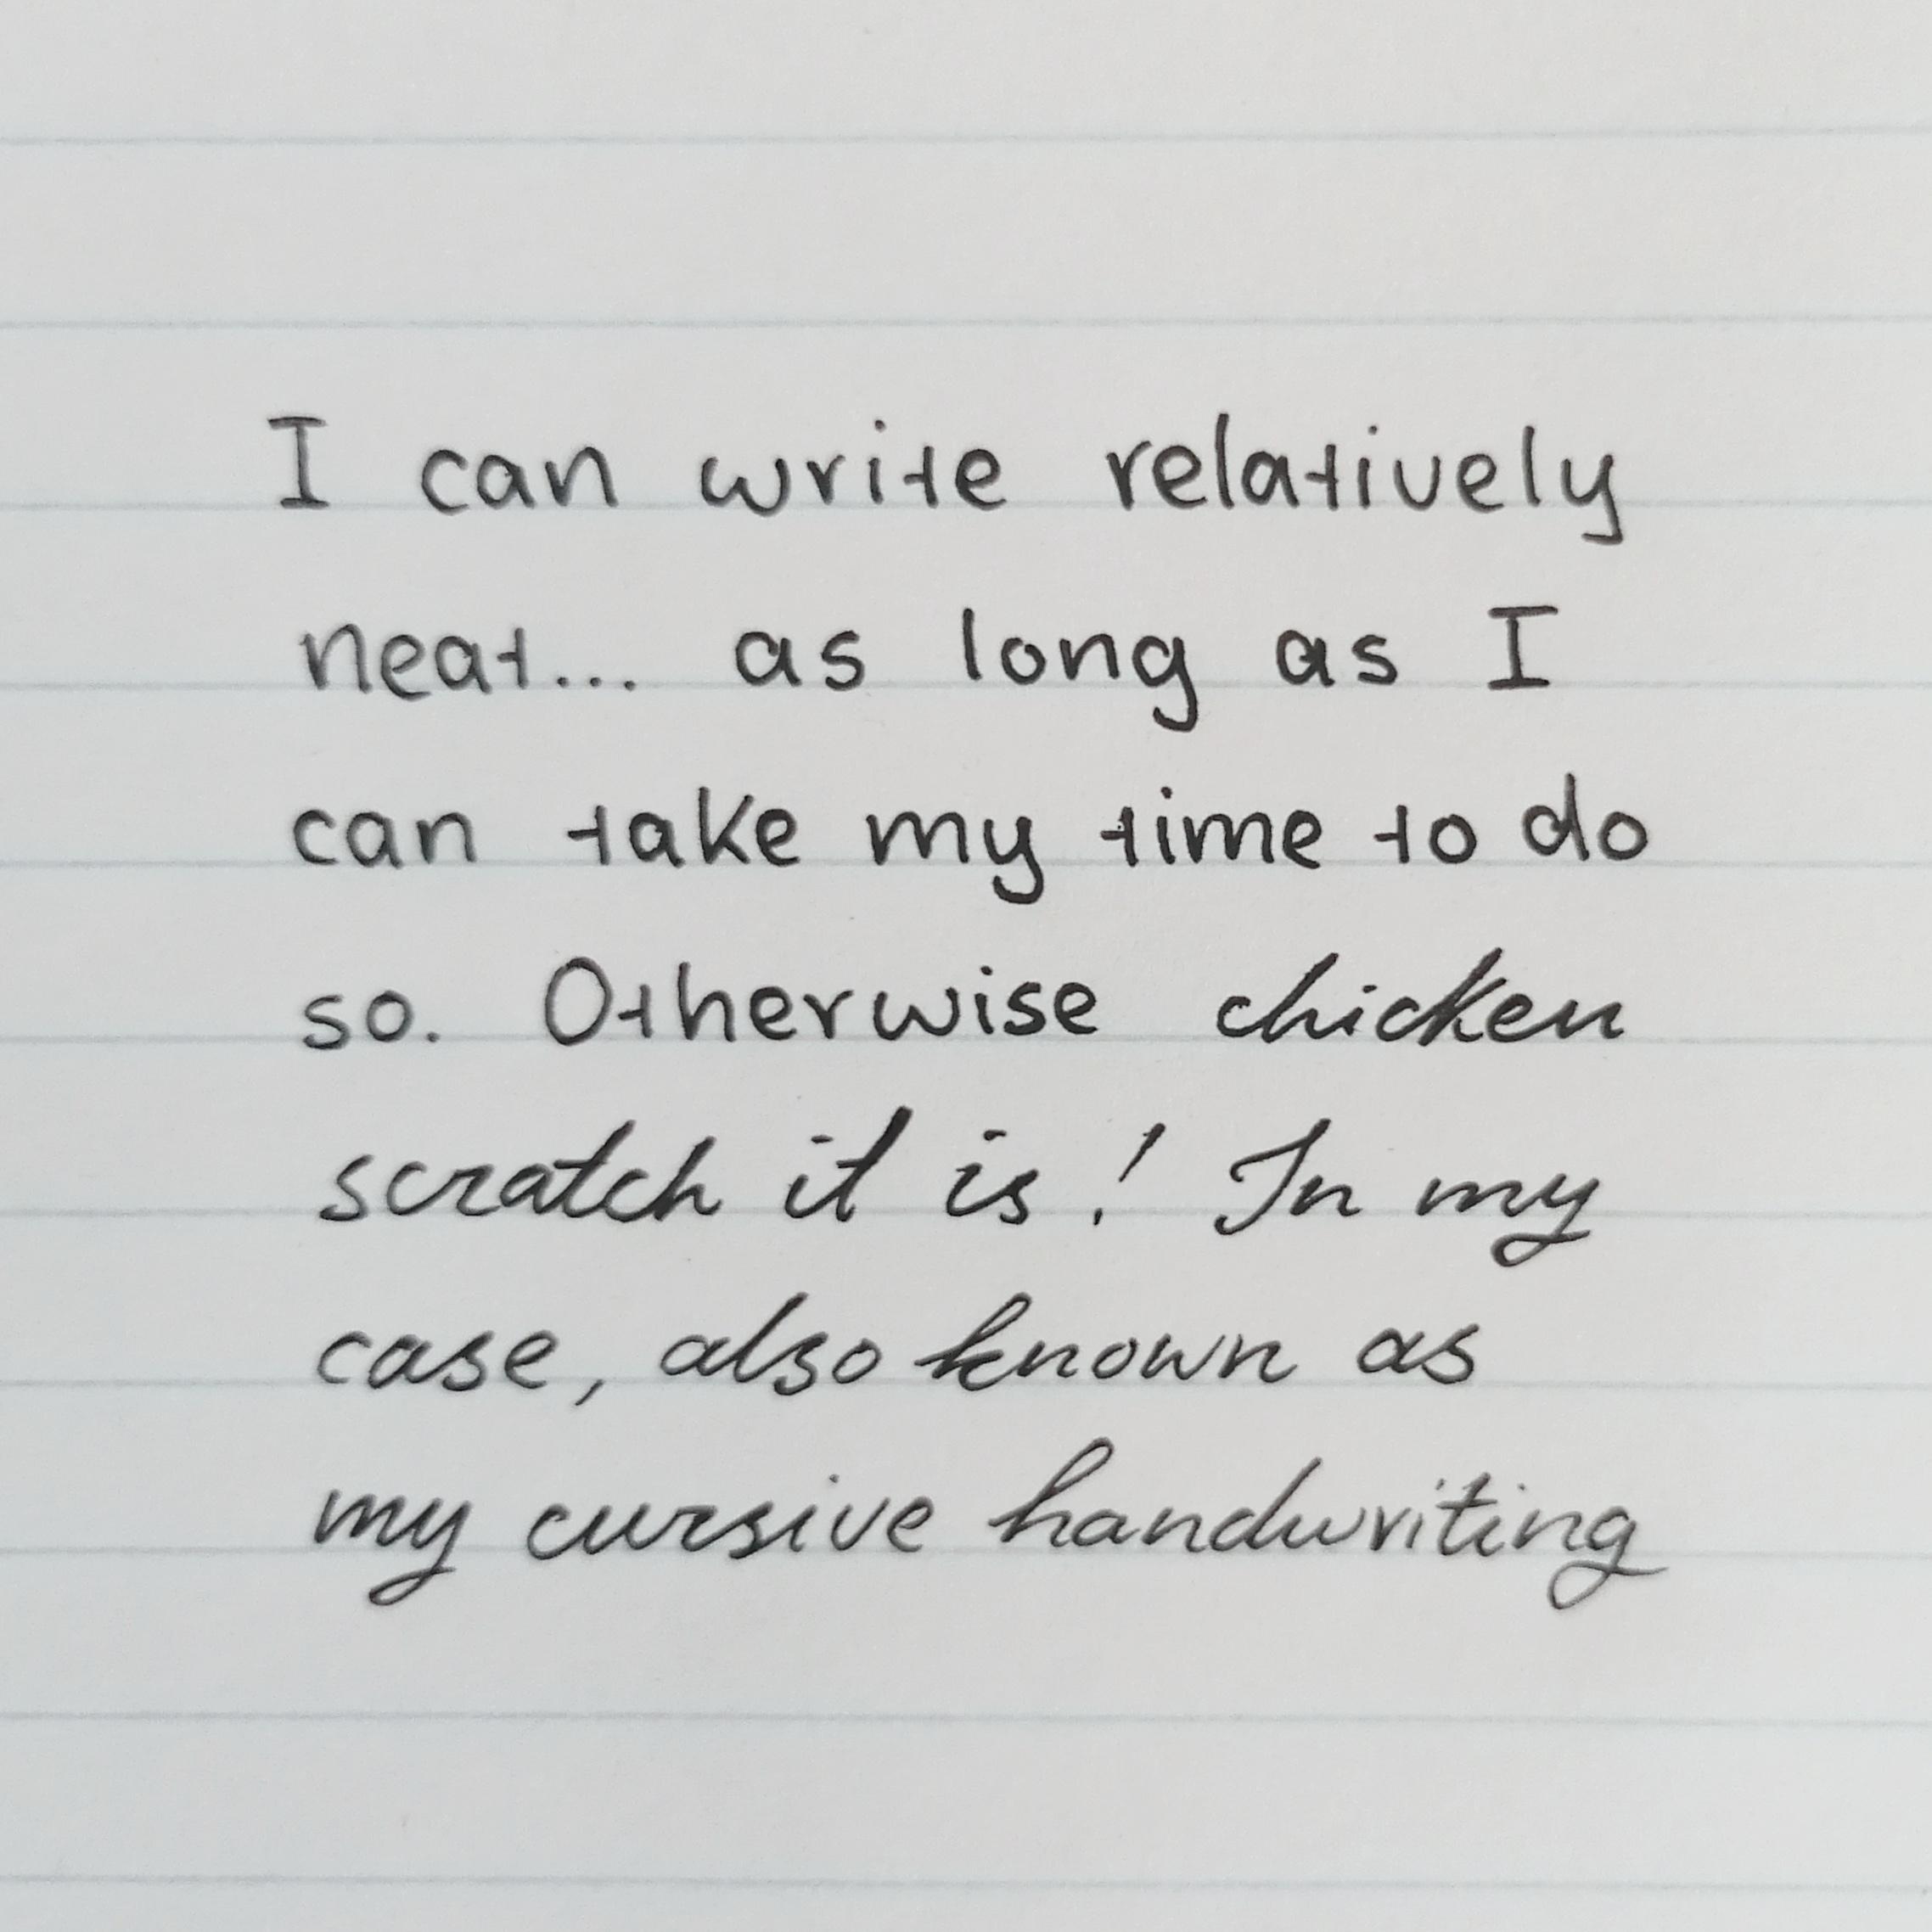 I can write relatively
neat... as long as I
can take my time to do
so. Otherwise chicken
scratch it is! In my
case, also known as
my cursive handwriting